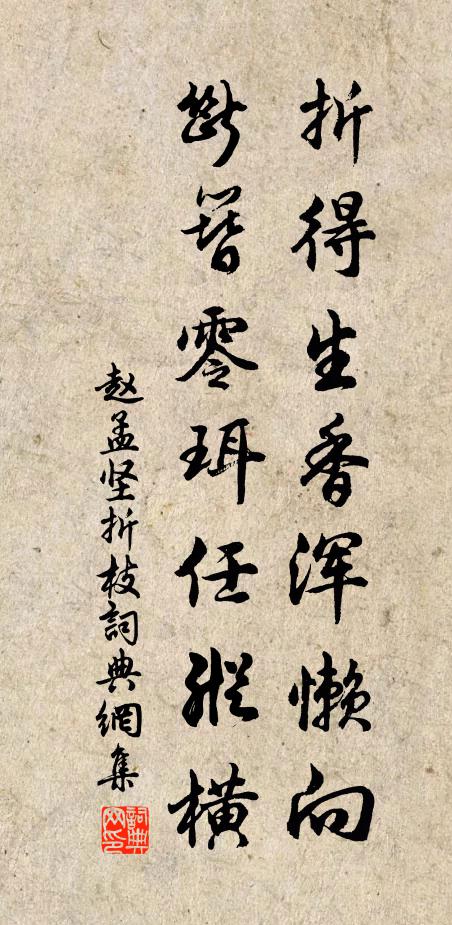 折得生香浑懒向
断簪零珥任縱橫
赵孟坚折枝詞典網集
詞典网印